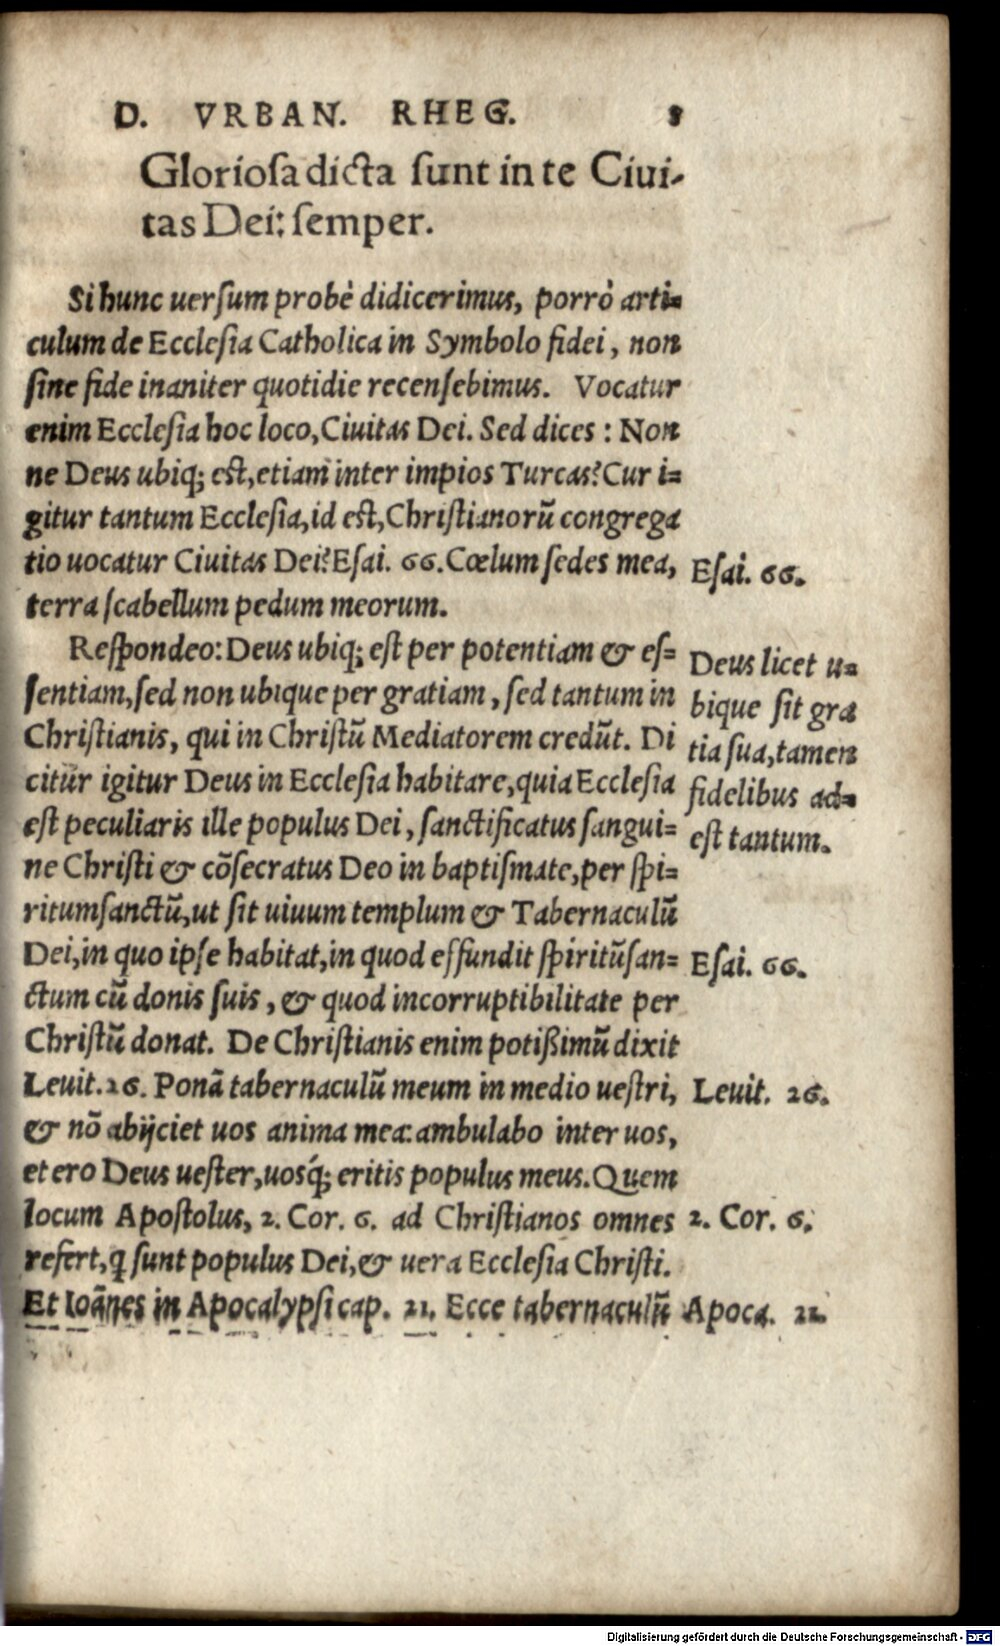 D. VRBAN. RHEG. 8
Gloriosa dicta sunt in te Ciui-
tas Dei: semper.
Si hunc uersum probè didicerimus, porrò arti=
culum de Ecclesia Catholica in Symbolo fidei, non
sine fide inaniter quotidie recensebimus. Vocatur
enim Ecclesia hoc loco, Ciuitas Dei. Sed dices: Non
ne Deus ubiq; est, etiam inter impios Turcas? Cur i=
gitur tantum Ecclesia, id est, Christianorũ congrega
tio uocatur Ciuitas Dei? Esai. 66. Cœlum sedes mea,
Esai. 66.
terra scabellum pedum meorum.
Respondeo: Deus ubiq; est per potentiam & es=
sentiam, sed non ubique per gratiam, sed tantum in
Christianis, qui in Christũ Mediatorem credũt. Di
citur igitur Deus in Ecclesia habitare, quia Ecclesia
est peculiaris ille populus Dei, sanctificatus sangui=
Deus licet u=
bique sit gra
tia sua, tamen
fidelibus ad=
est tantum.
ne Christi & cõsecratus Deo in baptismate, per spi=
ritumsanctũ, ut sit uiuum templum & Tabernaculũ
Dei, in quo ipse habitat, in quod effundit spiritũsan=
Esai. 66.
ctum cũ donis suis, & quod incorruptibilitate per
Christũ donat. De Christianis enim potißimũ dixit
Leuit. 26. Ponã tabernaculũ meum in medio uestri,
Leuit. 26.
& nõ abijciet uos anima mea: ambulabo inter uos,
et ero Deus uester, uosq́; eritis populus meus. Quem
locum Apostolus, 2. Cor. 6. ad Christianos omnes
2. Cor. 6.
refert, q̃ sunt populus Dei, & uera Ecclesia Christi.
Et Ioãnes in Apocalypsi cap. 21. Ecce tabernaculũ
Apoca. 21.
Digitalisierung gefördert durch die Deutsche Forschungsgemeinschaft - DFG